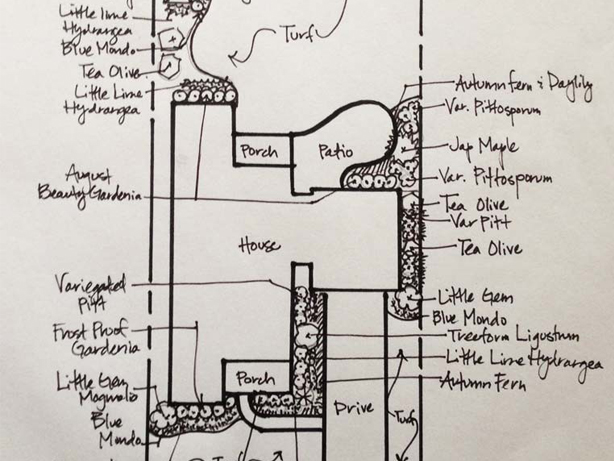 Little lime
Hydrangea
Blue Mondo
Tea Olive
Little Lime
Hydrangea
Turf
Autumn Fern & Daylily
Var. Pittosporum
Jap Maple
Var. Pittosporum
Tea Olive
Var Pitt
Tea Olive
Porch
Patio
August
Beauty Gardenia
House
Variegated
Pitt
Frost Proof
Gardenia
Little Gem
Magnolia
Blue
Mondo
Porch
Drive
Turf
Little Gem
Blue Mondo
Treeform Ligustrum
Little Lime Hydrangea
Autumn Fern